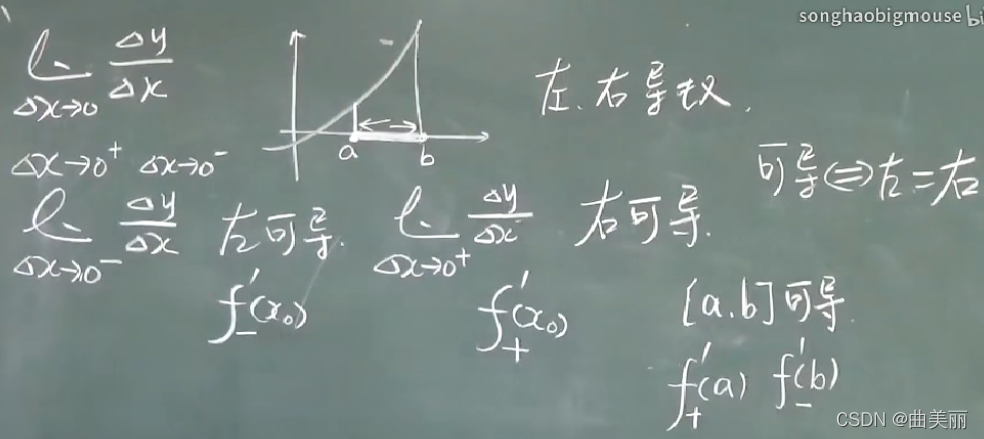 songhaobigmouse bi
lim Δy/Δx
Δx→0
a b
左、右导数.
Δx→0⁺ Δx→0⁻
可导⇔左=右
lim Δy/Δx 左可导. lim Δy/Δx 右可导.
Δx→0⁻ Δx→0⁺
f₋′(x₀) f₊′(x₀)
[a.b]可导.
f₊′(a) f₋′(b)
CSDN @曲美丽